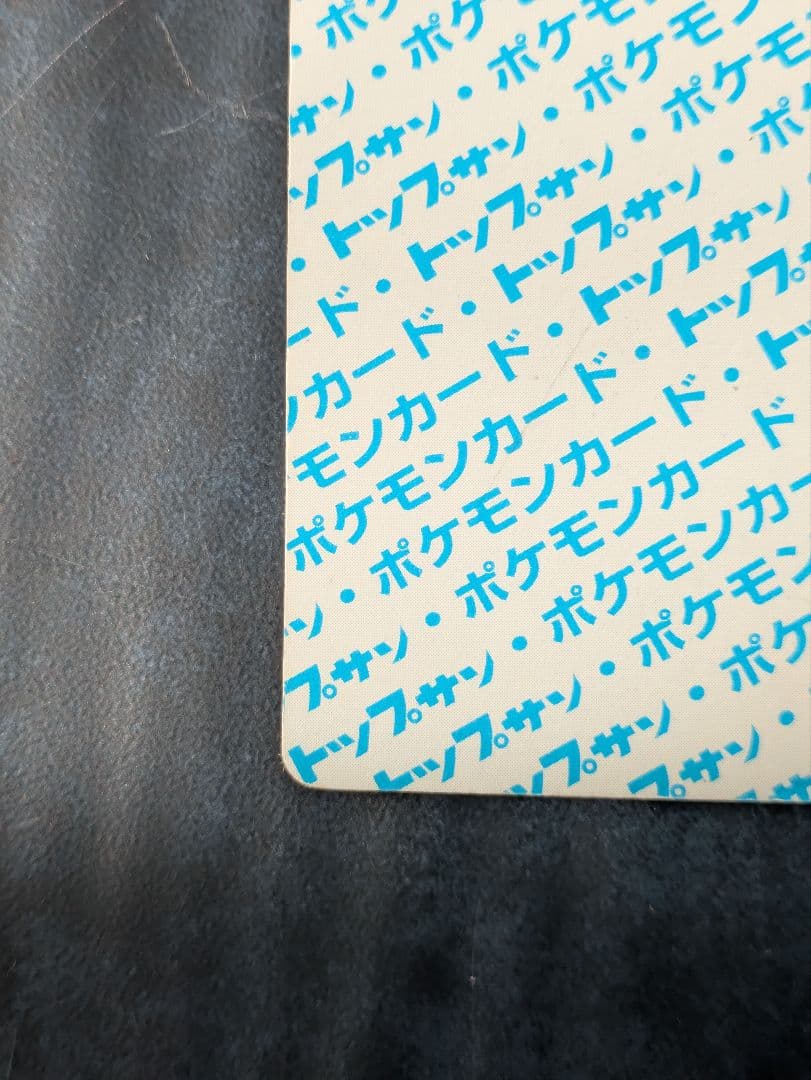 ・ポケ
サン・ポケ
ップサン・ポケモ
・トップサン・ポケモン
ード・トップサン・ポケモ
ンカード・トップサン・ポ
モンカード・トップサン・
ポケモンカード・トップサ
ン・ポケモンカード・ト
プサン・ポケモンカード
トップサン・ポケモンカー
トップサン・ポケモン
ップサン・ポケ
プサン・